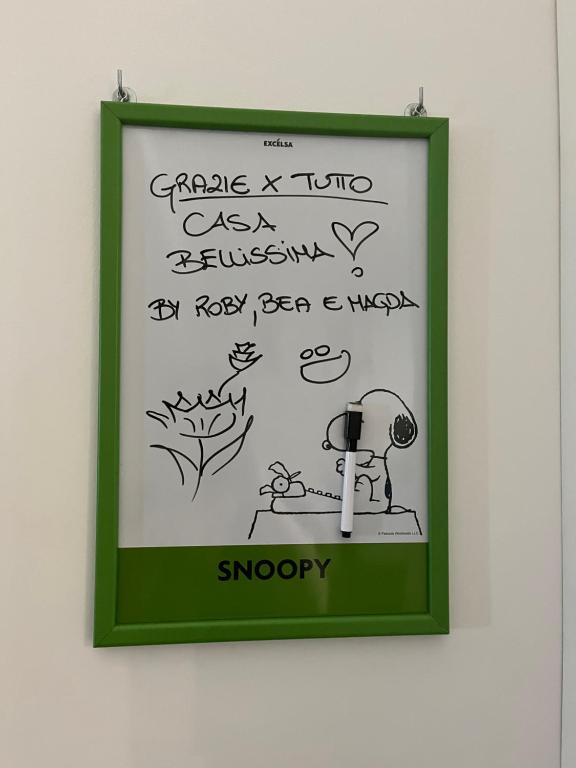 EXCÉLSA
GRAZIE X TUTTO
CASA
BELLISSIMA
BY ROBY, BEA E MAGDA
© Peanuts Worldwide LLC
SNOOPY